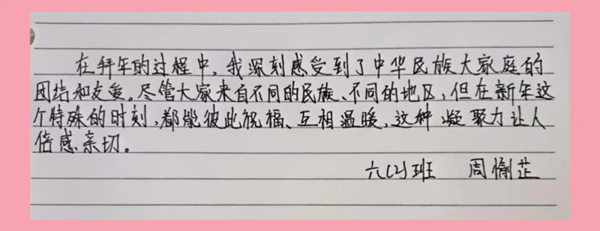 在拜年的过程中，我深刻感受到了中华民族大家庭的
团结和友爱。尽管大家来自不同的民族、不同的地区，但在新年这
个特殊的时刻，都能彼此祝福、互相温暖，这种凝聚力让人
倍感亲切。
六(2)班 周愉芷